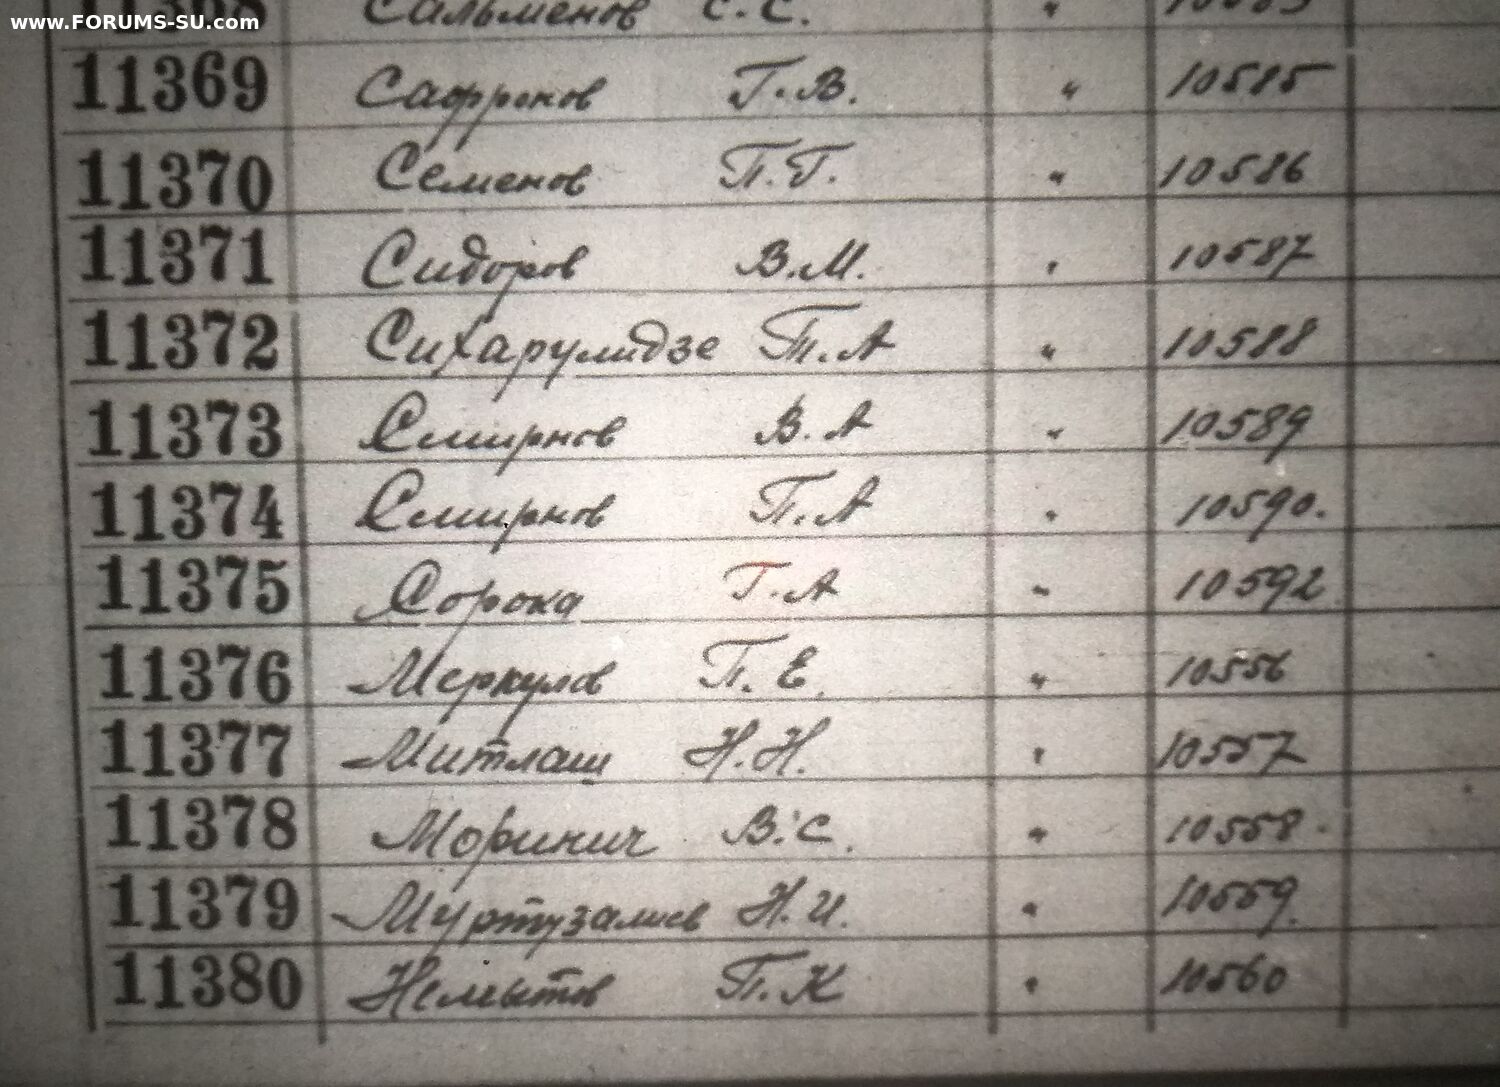 www.FORUMS-SU.com
11368 Сальменов С.С. "
11369 Сафронов Г.В. " 10585
11370 Семенов П.Г. " 10586
11371 Сидоров В.М. " 10587
11372 Сихарулидзе П.А " 10588
11373 Смирнов В.А " 10589
11374 Смирнов П.А " 10590.
11375 Сорока Г.А " 10592
11376 Меркулов П.Е. " 10556
11377 Митлаш Н.Н. " 10557
11378 Моринич В.С. " 10558
11379 Муртузалиев Н.И. " 10559.
11380 Немытов П.К " 10560